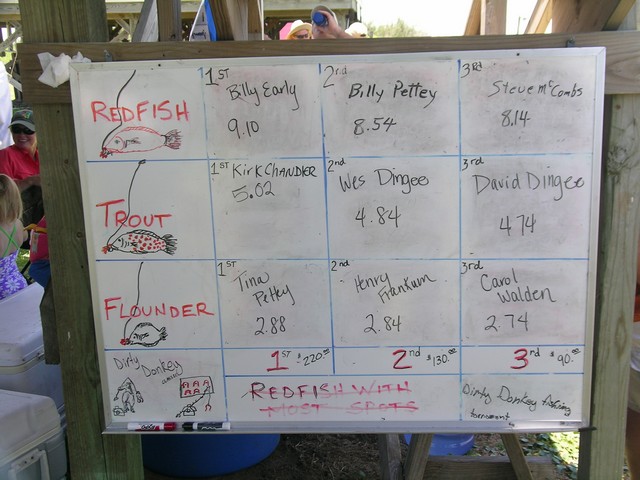 REDFISH
1ST
Billy Early
9.10
2rd
Billy Pettey
8.54
3Rd
Steve McCombs
8.14
TROUT
1ST
KirK CHANDLER
5.02
2nd
Wes Dingee
4.84
3rd
David Dingee
4.74
FLOUNDER
1ST
Tina
Pettey
2.88
2nd
Henry
Frankum
2.84
3rd
Carol
Walden
2.74
Dirty Donkey
1ST $220.00
2nd $130.00
3rd $90.00
REDFISH WITH
MOST SPOTS
Dirty Donkey fishing
tournament